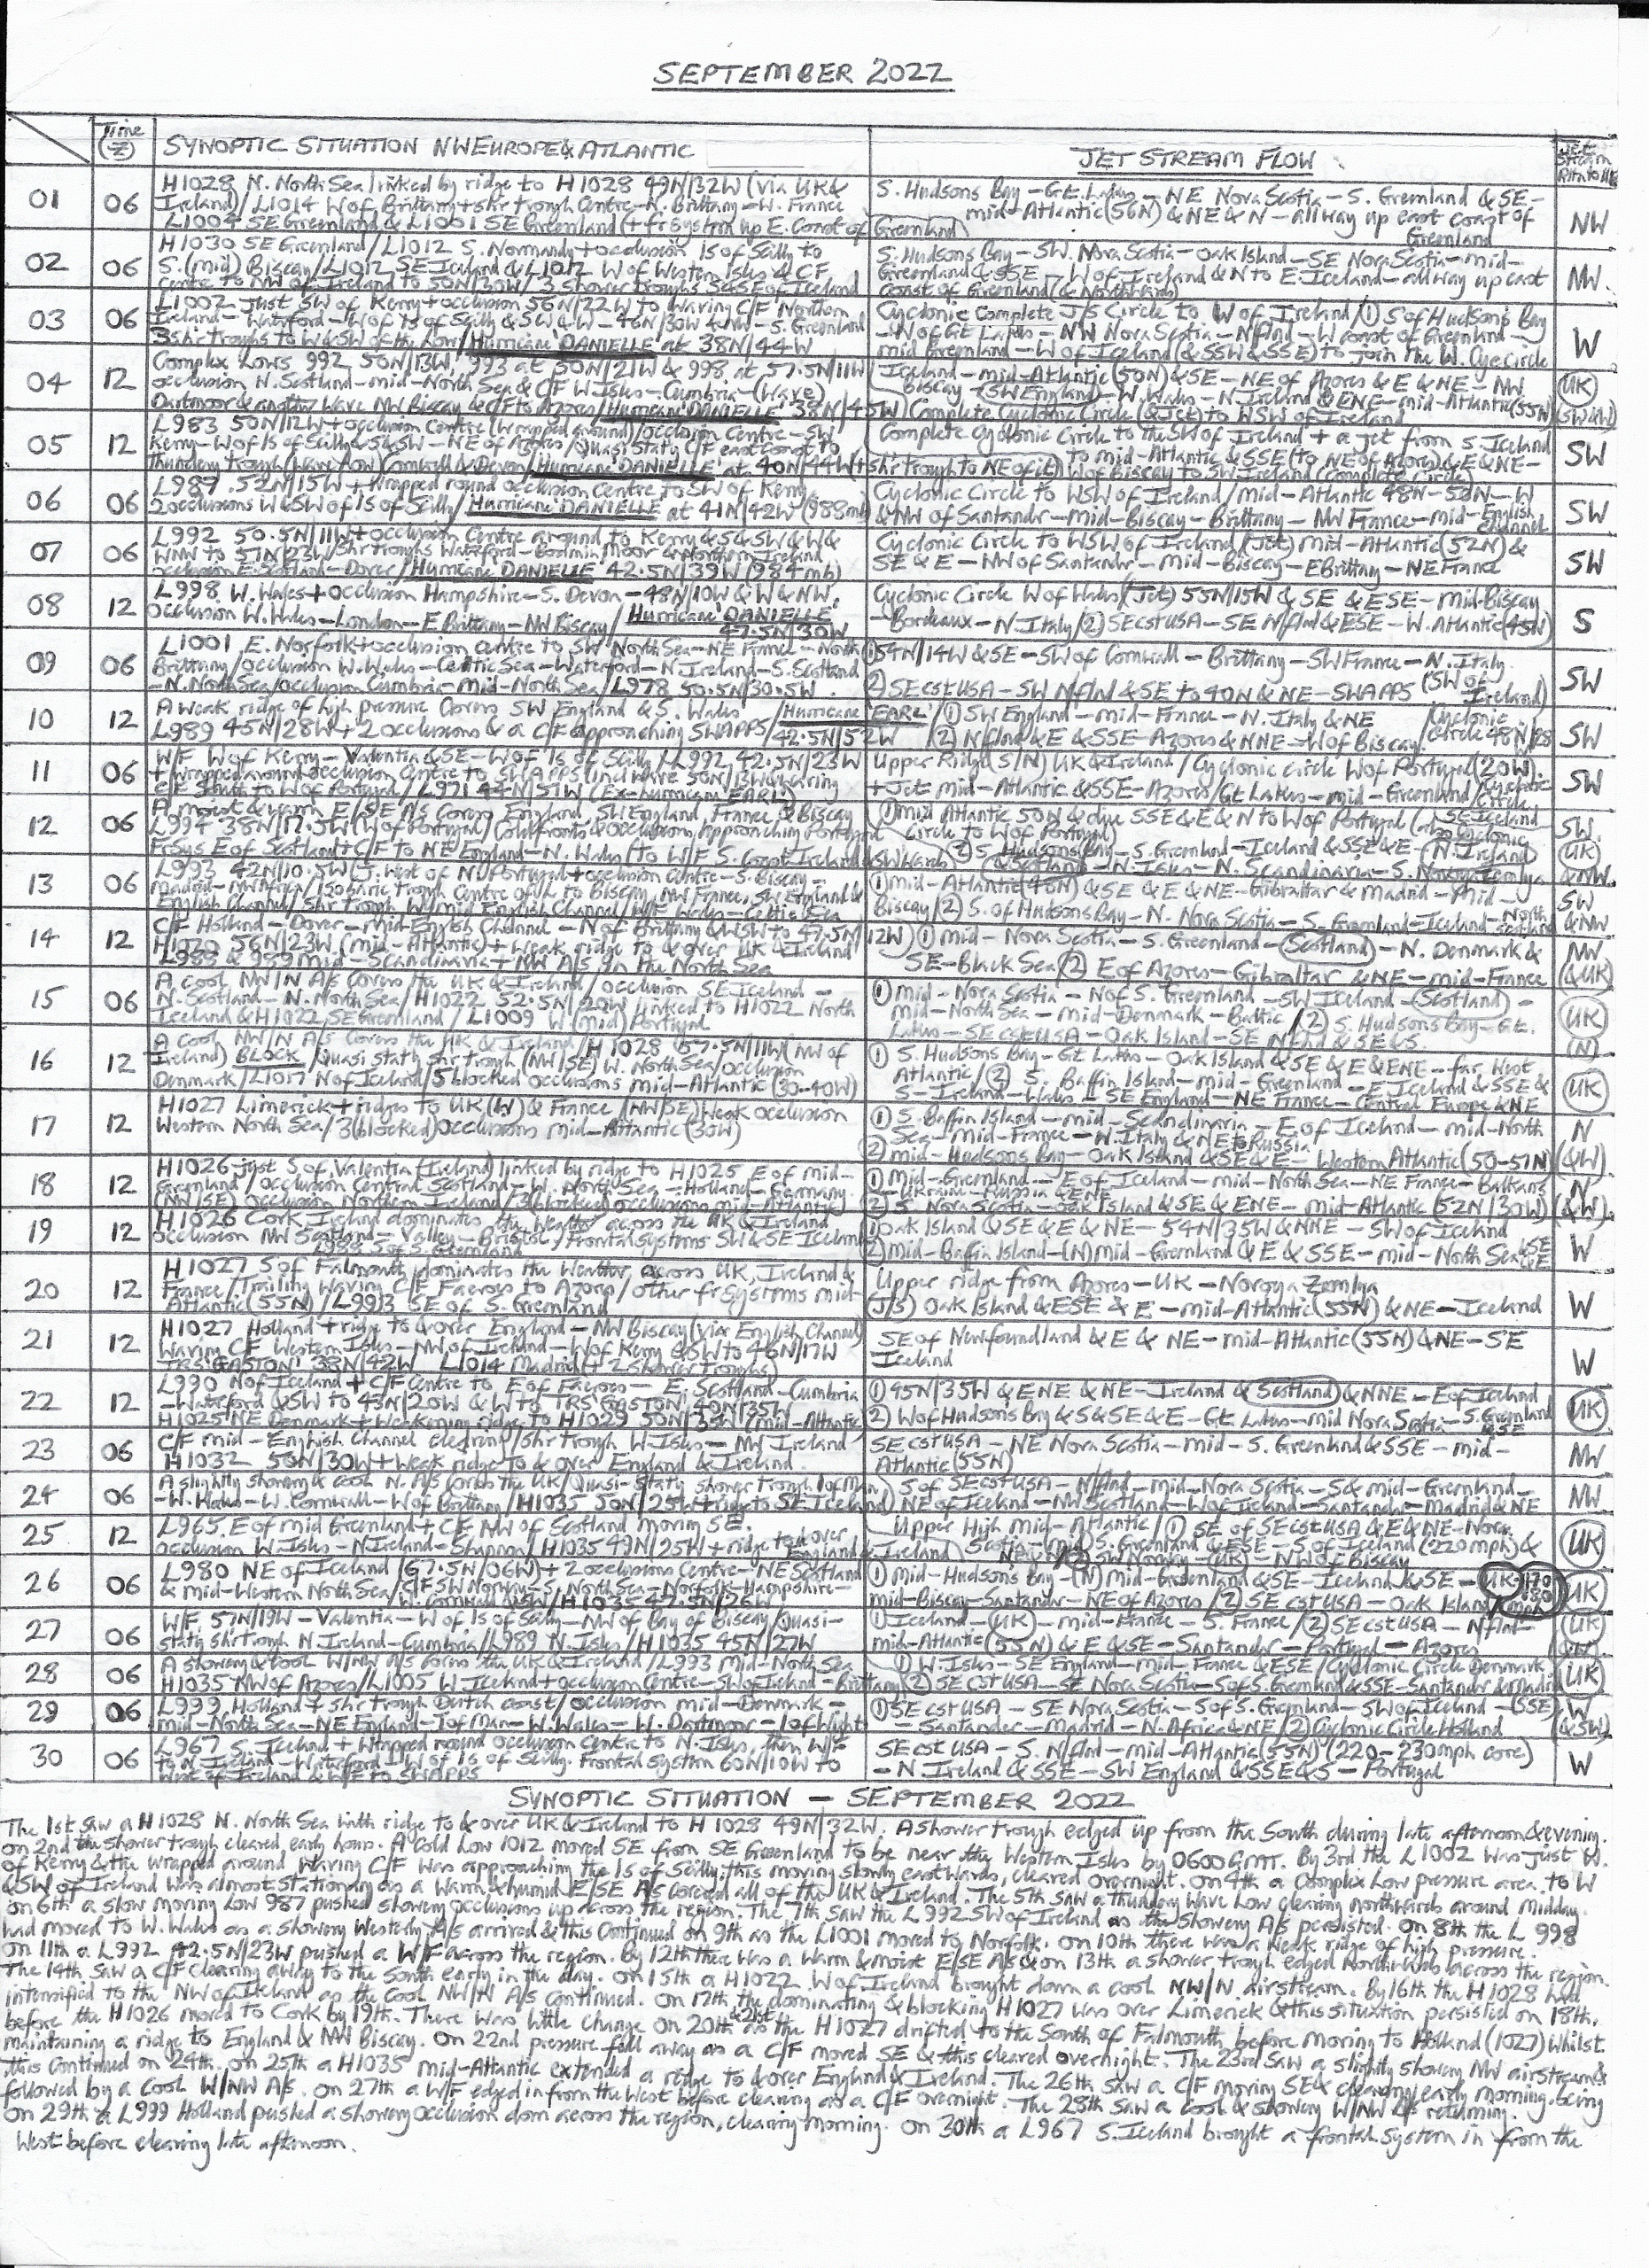 SEPTEMBER 2022
Time (Z)
SYNOPTIC SITUATION NW EUROPE & ATLANTIC
JET STREAM FLOW
Jet Stream
01 06
H1028 N. North Sea linked by ridge to H1028 49N/32W (via UK &
Ireland)/L1014 W of Brittany + shr trough Centre - N. Brittany - W. France
L1004 SE Greenland & L1001 SE Greenland (+ fr system up E. Coast of Greenland)
S. Hudsons Bay - Gt. Lakes - NE Nova Scotia - S. Greenland & SE -
mid-Atlantic (56N) & NE & N - all way up east coast of
Greenland
NW
02 06
H1030 SE Greenland/L1012 S. Normandy + occlusion Is of Scilly to
S. (mid) Biscay/L1012 SE Iceland & L1012 W of Western Isles & C/F
centre to NW of Ireland to 50N/30W/3 shower troughs S & SE of Iceland
S. Hudsons Bay - SW. Nova Scotia - Oak Island - SE Nova Scotia - mid-
Greenland & SSE - W of Ireland & N to E. Iceland - all way up east
coast of Greenland (& Northwards)
NW.
03 06
L1002 just SW of Kerry + occlusion 56N/22W to waving C/F Northern
Ireland - Waterford - W of Is of Scilly & SW & W - 46N/30W & NW - S. Greenland
3 shr troughs to W & SW of the Low/Hurricane 'DANIELLE' at 38N/44W
Cyclonic Complete J/S Circle to W of Ireland/(1) S of Hudson's Bay
- N of Gt Lakes - NW Nova Scotia - N flnd - W coast of Greenland -
mid Greenland - W of Iceland (& SSW & SSE) to join the W. Cyc Circle
W
04 12
Complex Lows 992 50N/13W, 993 at 50N/21W & 998 at 57.5N/11W
occlusion N. Scotland - mid-North Sea & C/F W. Isles - Cumbria - (Wave)
Dartmoor & another Wave NW Biscay & C/F to Azores/Hurricane 'DANIELLE' 38N/45W
Iceland - mid-Atlantic (50N) & SE - NE of Azores & E & NE - NW
Biscay - (SW England) - W. Wales - N. Ireland & ENE - mid-Atlantic (55N)
Complete Cyclonic Circle (& Jet) to WSW of Ireland
UK
(SW&W)
05 12
L983 50N/12W + occlusion Centre (wrapped around)/occlusion Centre - SW
Kerry - W of Is of Scilly & S & SW - NE of Azores/Quasi Staty C/F east Coast to
thundery trough (wave low) Cornwall & Devon/Hurricane 'DANIELLE' at 40N/44W (+ shr trough to NE of it)
Complete Cyclonic Circle to the SW of Ireland + a jet from S. Iceland
to mid-Atlantic & SSE (to NE of Azores) & E & NE -
W of Biscay to SW Ireland (Complete Circle)
SW
06 06
L987 52N/15W + wrapped round occlusion Centre to SW of Kerry
2 occlusions W & SW of Is of Scilly/Hurricane 'DANIELLE' at 41N/42W (988mb)
Cyclonic Circle to WSW of Ireland/mid-Atlantic 48N - 52N - W
& NW of Santander - mid-Biscay - Brittany - NW France - mid-English
channel
SW
07 06
L992 50.5N/11W + occlusion Centre around to Kerry & S & SW & W &
WNW to 51N/23W/Shr troughs Waterford - Bodmin Moor & Northern Ireland
occlusion E. Scotland - Dover/Hurricane 'DANIELLE' 42.5N/39W (984mb)
Cyclonic Circle to WSW of Ireland/(Jet) Mid-Atlantic (52N) &
SE & E - NW of Santander - mid-Biscay - E Brittany - NE France
SW
08 12
L998 W. Wales + occlusion Hampshire - S. Devon - 48N/10W & W & NW.
occlusion W. Wales - London - E Brittany - NW Biscay/Hurricane 'DANIELLE'
47.5N/30W
Cyclonic Circle W of Wales/(Jet) 55N/15W & SE & ESE - mid-Biscay
- Bordeaux - N. Italy/(2) SE cst USA - SE N flnd & ESE - W. Atlantic (45N)
S
09 06
L1001 E. Norfolk + occlusion centre to SW North Sea - NE France - North
Brittany/occlusion W. Wales - Celtic Sea - Waterford - N. Ireland - S. Scotland
- N. North Sea/occlusion Cumbria - Mid-North Sea/L978 50.5N/30.5W.
(1) 54N/14W & SE - SW of Cornwall - Brittany - SW France - N. Italy.
(2) SE cst USA - SW N flnd & SE to 40N & NE - SWAPPS (SW of
Ireland)
SW
10 12
A weak ridge of high pressure Covers SW England & S. Wales/Hurricane 'EARL'
L989 45N/28W + 2 occlusions & a C/F approaching SWAPPS/42.5N/52W
(1) SW England - mid-France - N. Italy & NE/Cyclonic
(2) N flnd & E & SSE - Azores & NNE - W of Biscay. Circle 48N/28
SW
11 06
W/F W of Kerry - Valentia & SE - W of Is of Scilly/L992 42.5N/23W
+ wrapped around occlusion Centre to SWAPPS (incl wave 50N/13W & waving
C/F South to W of Portugal/L971 44N/51W (Ex-hurricane EARL)
Upper Ridge (S/N) UK & Ireland/Cyclonic circle W of Portugal (20W).
+ Jet mid-Atlantic & SSE - Azores/Gt Lakes - mid-Greenland/Cyclonic
Circle
SW
12 06
A moist & warm E/SE A/S Covers England, SW England, France & Biscay
L994 38N/17.5W (W of Portugal) Cold fronts & occlusions approaching Portugal
Fr Sys E of Scotland + C/F to NE England - N. Wales (to W/F S. Coast Ireland
(1) mid Atlantic 50N & dye SSE & E & N to W of Portugal
Circle to W of Portugal)
(2) S. Hudsons Bay - S. Greenland - Iceland & SSE & E - N. Ireland
& Scotland - N. Isles - N. Scandinavia - S. Novaya Zemlya
SW.
UK
& NW.
13 06
L993 42N/10.5W (J. West of N. Portugal + occlusion Centre - S. Biscay -
Madrid - NW Africa/Isobaric trough Centre of L to Biscay, NW France, SW England &
English Channel/Shr trough W/Mid English Channel/W/F Wales - Celtic Sea
(1) mid-Atlantic (48N) & SE & E & NE - Gibraltar & Madrid - Mid -
Biscay/(2) S. of Hudsons Bay - N. Nova Scotia - S. Greenland - Iceland - North
Scotland
SW
& NW
14 12
C/F Holland - Dover - mid-English Channel - N of Brittany & WSW to 47.5N/12W
H1020 56N/23W (mid-Atlantic) + weak ridge to & over UK & Ireland
L989 & 989 mid-Scandinavia + NW A/S in the North Sea
(1) mid-Nova Scotia - S. Greenland - Scotland - N. Denmark &
SE - Black Sea/(2) E of Azores - Gibraltar & NE - mid-France
NW
(&UK)
15 06
A cool NW/N A/S Covers the UK & Ireland/occlusion SE Iceland -
N. Scotland - N. North Sea/H1022 52.5N/20W linked to H1022 North
Iceland & H1022 SE Greenland/L1009 W (Mid) Portugal
(1) mid-Nova Scotia - N of S. Greenland - SW Iceland - Scotland -
mid-North Sea - mid-Denmark - Baltic/(2) S. Hudsons Bay - Gt.
Lakes - SE cst USA - Oak Island - SE N flnd & SE & S.
UK
(N)
16 12
A cool NW/N A/S Covers the UK & Ireland/H1028 57.5N/11W (NW of
Ireland) BLOCK/Quasi staty shr trough (NW/SE) W. North Sea/occlusion
Denmark/L1017 N of Iceland/5 blocked occlusions mid-Atlantic (30-40W)
(1) S. Hudsons Bay - Gt Lakes - Oak Island & SE & E & ENE - far West
Atlantic/(2) S. Baffin Island - mid-Greenland - E Iceland & SSE &
S - Ireland - Wales - SE England - NE France - Central Europe & NE
UK
17 12
H1027 Limerick + ridges to UK (W) & France (NW/SE) Weak occlusion
Western North Sea/3 (blocked) occlusions mid-Atlantic (30W)
(1) S. Baffin Island - mid-Scandinavia - E of Iceland - mid-North
Sea - mid-France - W. Italy & NE to Russia
(2) mid-Hudsons Bay - Oak Island & SE & E - Western Atlantic (50-51N)
N
(&W).
18 12
H1026 just S of Valentia (Ireland) linked by ridge to H1025 E of mid-
Greenland/occlusion Central Scotland - W. North Sea - Holland - Germany.
(NW/SE) occlusion Northern Ireland/3 (blocked) occlusions mid-Atlantic)
(1) Mid-Greenland - E of Iceland - mid-North Sea - NE France - Balkans
- Ukraine - Russia & ENE
(2) S. Nova Scotia - Oak Island & SE & ENE - mid-Atlantic (52N/30W)
N
(&W).
19 12
H1026 Cork, Ireland dominates the weather across the UK & Ireland
occlusion NW Scotland - Valley - Bristol/Frontal systems SW & SE Iceland
L988 S of S. Greenland
(1) Oak Island & SE & E & NE - 54N/35W & NNE - SW of Iceland
(2) Mid-Baffin Island - (N) mid-Greenland & E & SSE - mid-North Sea & SE
W
20 12
H1027 S of Falmouth, dominates the Weather, across UK, Ireland &
France/Trailing Waving C/F Faeroes to Azores/other fr systems mid-
Atlantic (55N)/L993 SE of S. Greenland
Upper ridge from Azores - UK - Novoya Zemlya
(J/S) Oak Island & ESE & E - mid-Atlantic (55N) & NE - Iceland
W
21 12
H1027 Holland + ridge to & over England - NW Biscay (via English Channel)
Waving C/F Western Isles - NW of Ireland - W of Kerry & SW to 46N/17W
TRS 'GASTON' 38N/42W L1014 Madrid (+ 2 Shower troughs)
SE of Newfoundland & E & NE - mid-Atlantic (55N) & NE - SE
Iceland
W
22 12
L990 N of Iceland + C/F Centre to E of Faeroes - E. Scotland - Cumbria
- Waterford & SW to 43N/20W & W to TRS 'GASTON' 40N/35W
H1025 NE Denmark + Weakening ridge to H1029 50N/35W (mid-Atlantic)
(1) 45N/35W & ENE & NE - Ireland & Scotland & NNE - E of Iceland
(2) W of Hudson's Bay & S & SE & E - Gt Lakes - mid Nova Scotia - S. Greenland
& SE
UK
23 06
C/F mid-English Channel clearing/shr trough W. Isles - NW Ireland
H1032 50N/30W + Weak ridge to & over England & Ireland.
SE cst USA - NE Nova Scotia - mid-S. Greenland & SSE - mid-
Atlantic (55N)
NW
24 06
A slightly showery & cool N. A/S Covers the UK/Quasi-Staty shower trough I of Man
- W. Wales - W. Cornwall - W of Brittany/H1035 50N/25W + ridge to SE Iceland
S of SE cst USA - N/flnd - mid-Nova Scotia - S & mid-Greenland -
NE of Iceland - NW Scotland - W of Ireland - Santander - Madrid & NE
NW
25 12
L965 E of mid Greenland + C/F NW of Scotland moving SE.
occlusion W. Isles - N. Ireland - Shannon/H1035 49N/25W + ridge to & over
England & Ireland
Upper High Mid-Atlantic/(1) SE of SE cst USA & E & NE - Nova
Scotia - (mid) S. Greenland & ESE - S of Iceland (220mph) &
(2) SW Norway - (UK) - NW of Biscay
UK
26 06
L980 NE of Iceland (67.5N/06W) + 2 occlusions Centre - NE Scotland
& mid-Western North Sea/C/F SW Norway - S. North Sea - Norfolk - Hampshire -
W. Cornwall & SW/H1035 47.5N/26W
(1) Mid-Hudsons Bay - (N) mid-Greenland & SE - Iceland & SE - UK - 170
mid-Biscay - Santander - NE of Azores/(2) SE cst USA - Oak Island
UK
27 06
W/F. 57N/19W - Valentia - W of Is of Scilly - NW of Bay of Biscay/Quasi-
staty shr trough N. Ireland - Cumbria/L989 N. Isles/H1035 45N/27W
(1) Iceland - (UK) - mid-France - S. France/(2) SE cst USA - N flnd -
mid-Atlantic (55N) & E & SE - Santander - Portugal - Azores
UK
(&W).
28 06
A showery & cool W/NW A/S Covers the UK & Ireland/L993 Mid-North Sea
H1035 NW of Azores/L1005 W. Iceland + occlusion Centre - SW of Ireland - Brittany
(1) W. Isles - SE England - mid-France & ESE/Cyclonic Circle Denmark
(2) SE cst USA - SE Nova Scotia - S of S. Greenland & SSE - Santander & Madrid
UK
29 06
L999 Holland + shr trough Dutch coast/occlusion mid-Denmark -
mid-North Sea - NE England - I of Man - W. Wales - W. Dartmoor - I of Wight
(1) SE cst USA - SE Nova Scotia - S of S. Greenland - SW of Iceland - (SSE)
- Santander - Madrid - N. Africa & NE/(2) Cyclonic Circle Holland
W
(&SW)
30 06
L967 S. Iceland + Wrapped round occlusion centre to N. Isles, then W/F
to N. Ireland - Waterford - W of Is of Scilly. Frontal System 60N/10W to
West of Ireland & W/F to SWAPPS
SE cst USA - S. N/flnd - mid-Atlantic (55N) (220-230mph core)
- N. Ireland & SSE - SW England & SSE & S - Portugal
W
SYNOPTIC SITUATION - SEPTEMBER 2022
The 1st saw a H1028 N. North Sea with ridge to & over UK & Ireland to H 1028 49N/32W. A shower trough edged up from the South during late afternoon & evening.
on 2nd the shower trough cleared early hours. A cold Low 1012 moved SE from SE Greenland to be near the Western Isles by 0600 GMT. By 3rd the L1002 was just W.
of Kerry & the wrapped around waving C/F was approaching the Is of Scilly; this moving slowly eastwards, cleared overnight. On 4th a Complex Low pressure area to W
& SW of Ireland was almost stationary as a warm & humid E/SE A/S covered all of the UK & Ireland. The 5th saw a thundery wave Low clearing northwards around Midday.
on 6th a slow moving Low 987 pushed showery occlusions up across the region. The 7th saw the L992 SW of Ireland as the showery A/S persisted. On 8th the L 998
had moved to W. Wales as a showery Westerly A/S arrived & this Continued on 9th as the L1001 moved to Norfolk. On 10th there was a weak ridge of high pressure.
On 11th a L992 42.5N/23W pushed a W/F across the region. By 12th there was a warm & moist E/SE A/S & on 13th a shower trough edged Northwards across the region.
The 14th saw a C/F clearing away to the South early in the day. On 15th a H1022 W of Ireland brought down a cool NW/N airstream. By 16th the H 1028 had
intensified to the NW of Ireland as the cool NW/N A/S continued. On 17th the dominating & blocking H1027 was over Limerick & this situation persisted on 18th,
before the H1026 moved to Cork by 19th. There was little change on 20th & 21st as the H1027 drifted to the South of Falmouth, before moving to Holland (1027) whilst
maintaining a ridge to England & NW Biscay. On 22nd pressure fell away as a C/F moved SE & this cleared overnight. The 23rd saw a slightly showery NW airstream &
this Continued on 24th. on 25th a H1035 mid-Atlantic extended a ridge to & over England & Ireland. The 26th saw a C/F moving SE & clearing early morning, being
followed by a cool W/NW A/S. On 27th a W/F edged in from the West before clearing as a C/F overnight. The 28th saw a cool & showery W/NW A/S returning.
On 29th a L999 Holland pushed a showery occlusion down across the region, clearing morning. On 30th a L967 S. Iceland brought a frontal system in from the
West before clearing late afternoon.